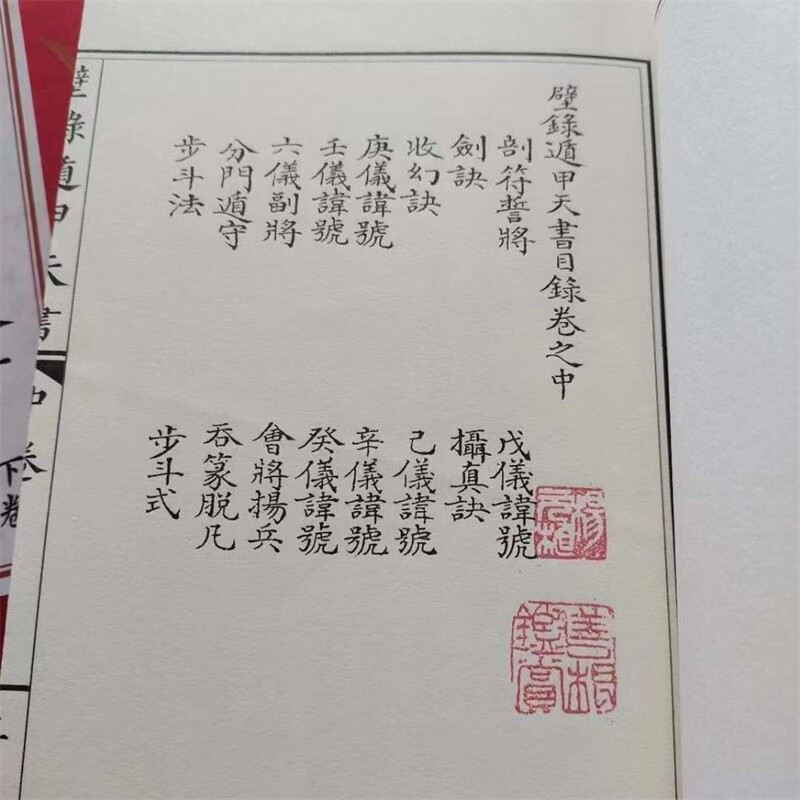 壁錄遁甲天書目錄卷之中
剖符誓將
戊儀諱號
劍訣
攝真訣
收幻訣
己儀諱號
庚儀諱號
辛儀諱號
壬儀諱號
癸儀諱號
六儀副將
會將揚兵
分門遁守
吞篆脫凡
步斗法
步斗式
壁錄遁甲天書
中卷
下卷
善相
鑑賞